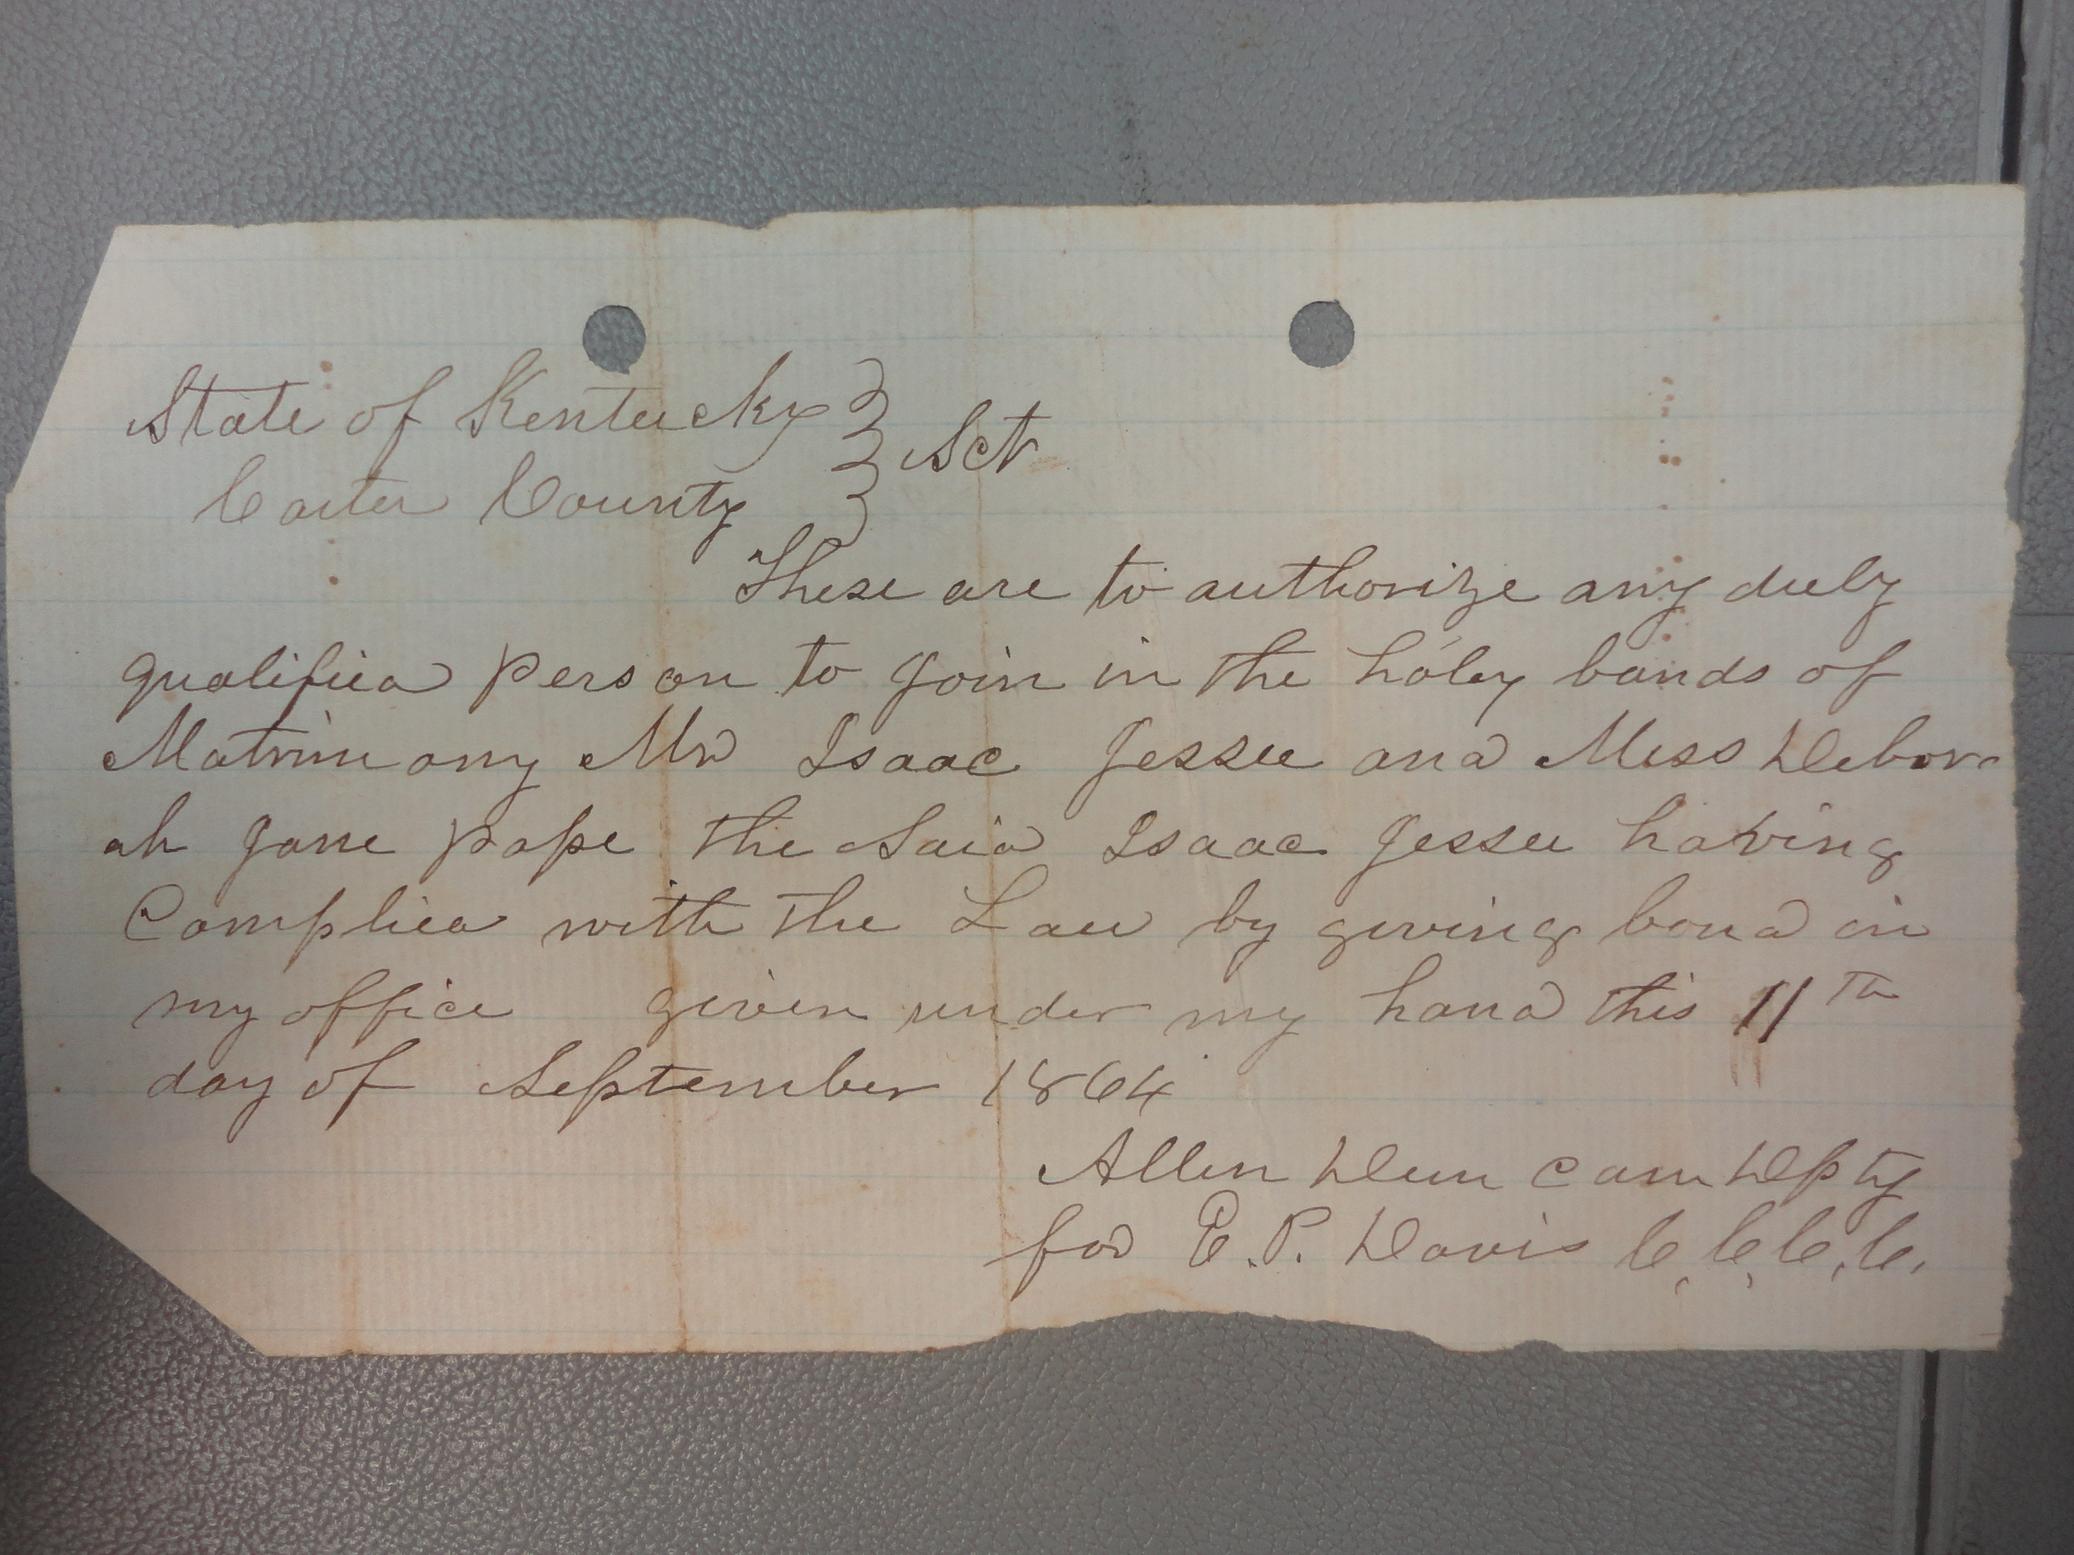 State of Kentucky } Sct
Carter County
These are to authorize any duly
qualified person to join in the holy bands of
Matrimony Mr Isaac Jessee and Miss Debor-
ah Jane pope the Said Isaac Jessee having
Complied with the Law by giving bond in
my office given under my hand this 11th
day of September 1864
Allen Duncam Dpty
for E.P. Davis C,C,C,C,